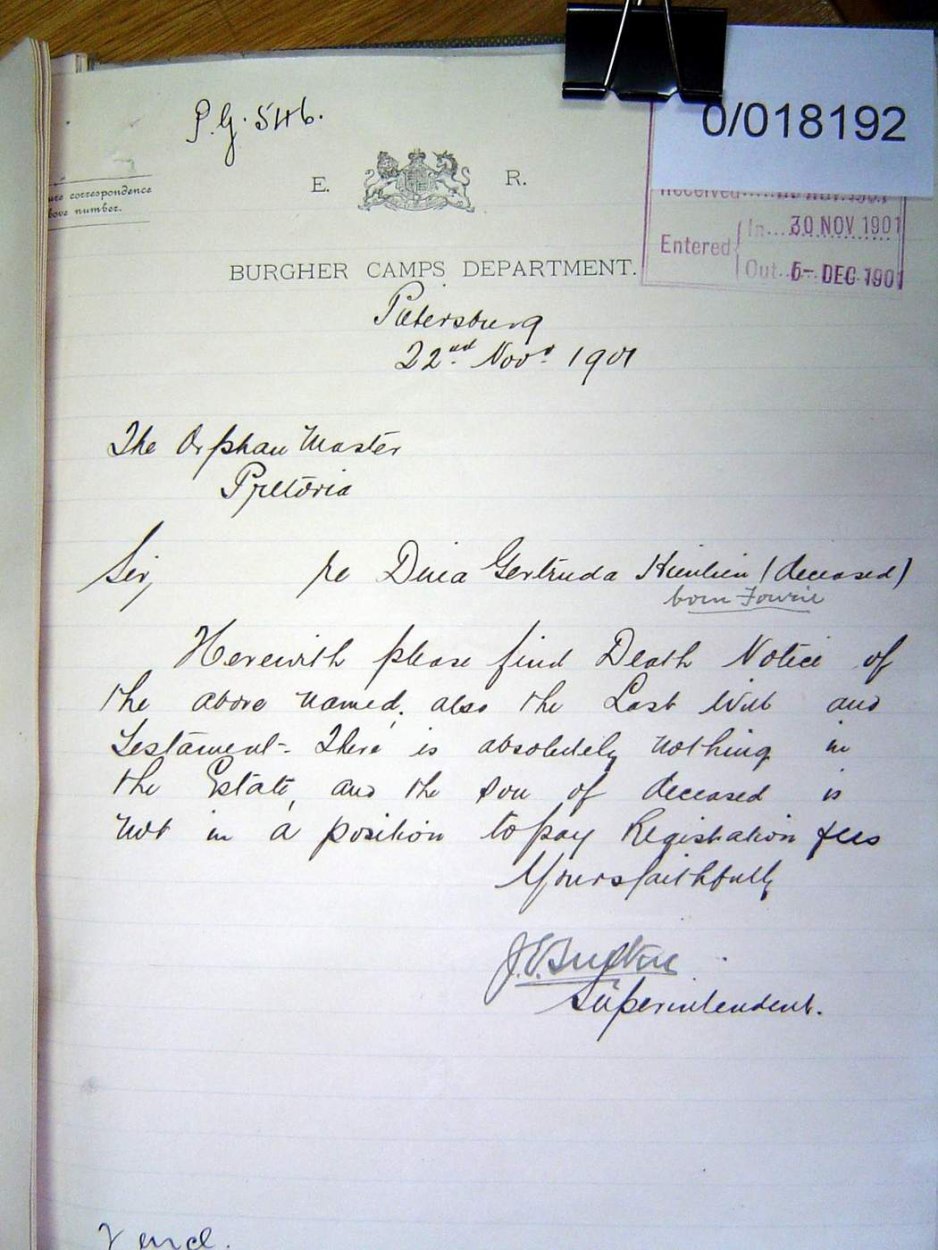 P.G. 546.
0/018192
ure correspondence
bove number.
E. R.
Received
Entered
In... 30 NOV 1901
Out.. 5- DEC 1901
BURGHER CAMPS DEPARTMENT.
Pietersburg
22nd Novr 1901
The Orphan Master
Pretoria
Sir, re Dina Gertruda (deceased)
born Fourie
Herewith please find Death Notice of
the above named, also the Last Will and
Testament. There is absolutely nothing in
the Estate, and the son of deceased is
not in a position to pay Registration fees
Yours faithfully
Superintendent.